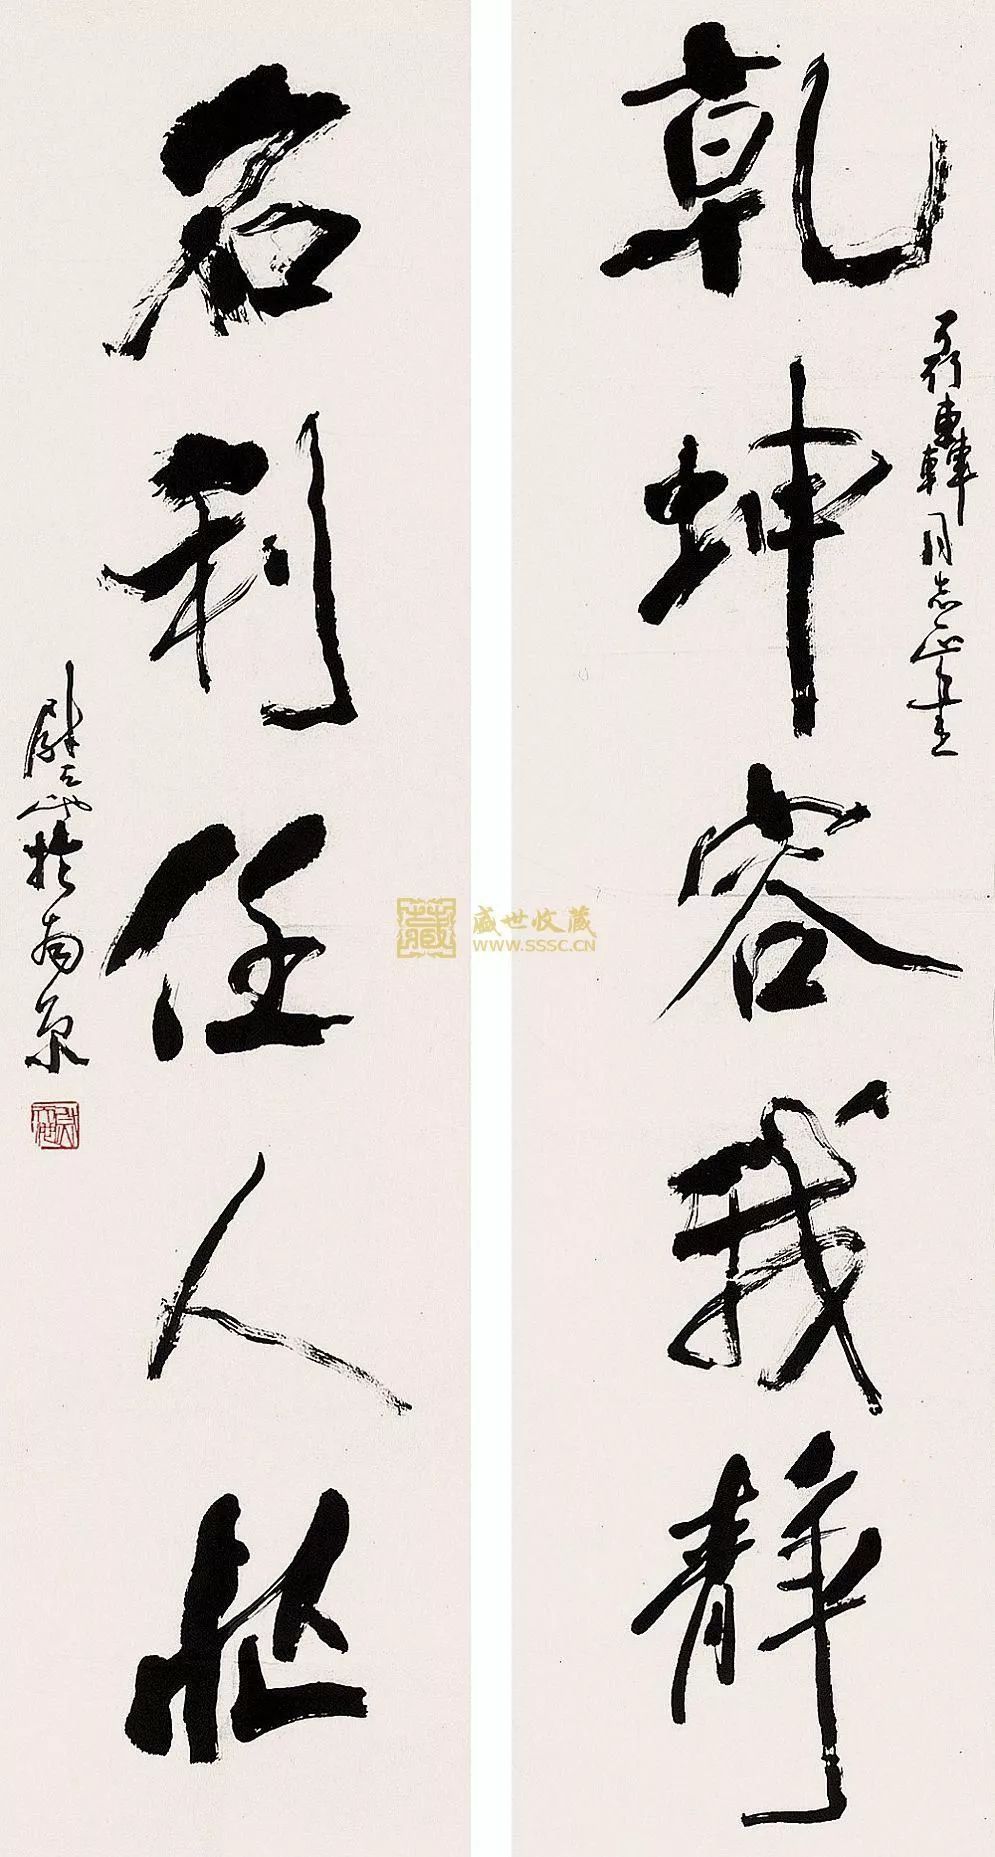 乾坤容我静
轟同志正
名利任人忙
尉天池於南京
藏
盛世收藏
WWW.SSSC.CN